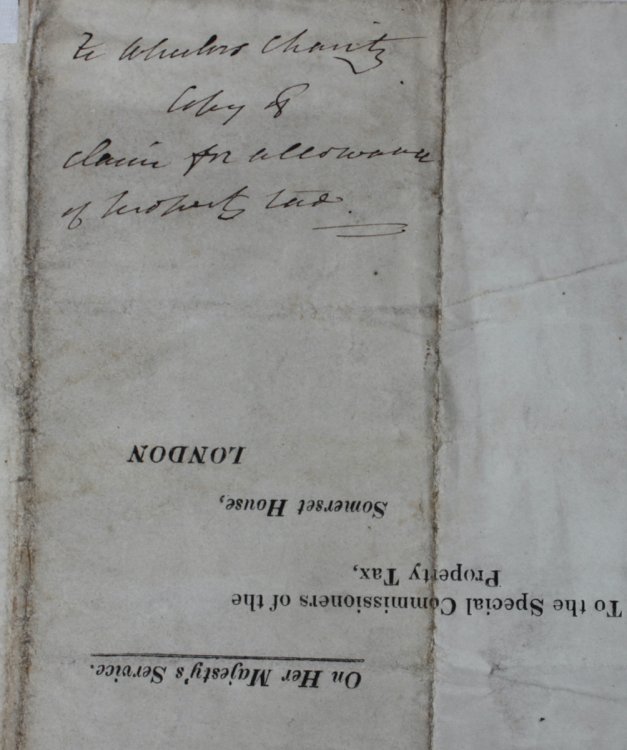 Wheelers Charity
Copy of
claim for allowance
of property tax
On Her Majesty's Service.
To the Special Commissioners of the
Property Tax,
Somerset House,
LONDON